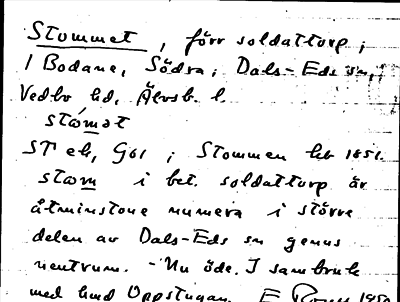 Stommet, förr soldattorp;
1 Bodane, Södra; Dals-Eds sn,;
Vedbo hd, Älvsb. l.
stòmət
ST ek, G61; Stommen hb 1851.
stom i bet. soldattorp är
åtminstone numera i större
delen av Dals-Eds sn genus
neutrum. - Nu öde. I sambruk
med hmd Uppstugan. E